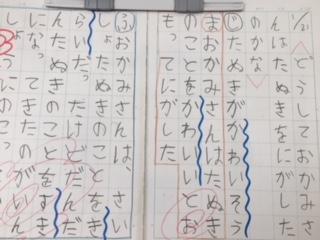 1/21
どうしておかみさ
んはたぬきをにがした
のかな
じたぬきがかわいそう
まおかみさんはたぬき
のことをかわいいとお
もってにがした
ふおかみさんは、さい
しょたぬきのことをき
らいだったけどだん
んたぬきのこと
になってきた